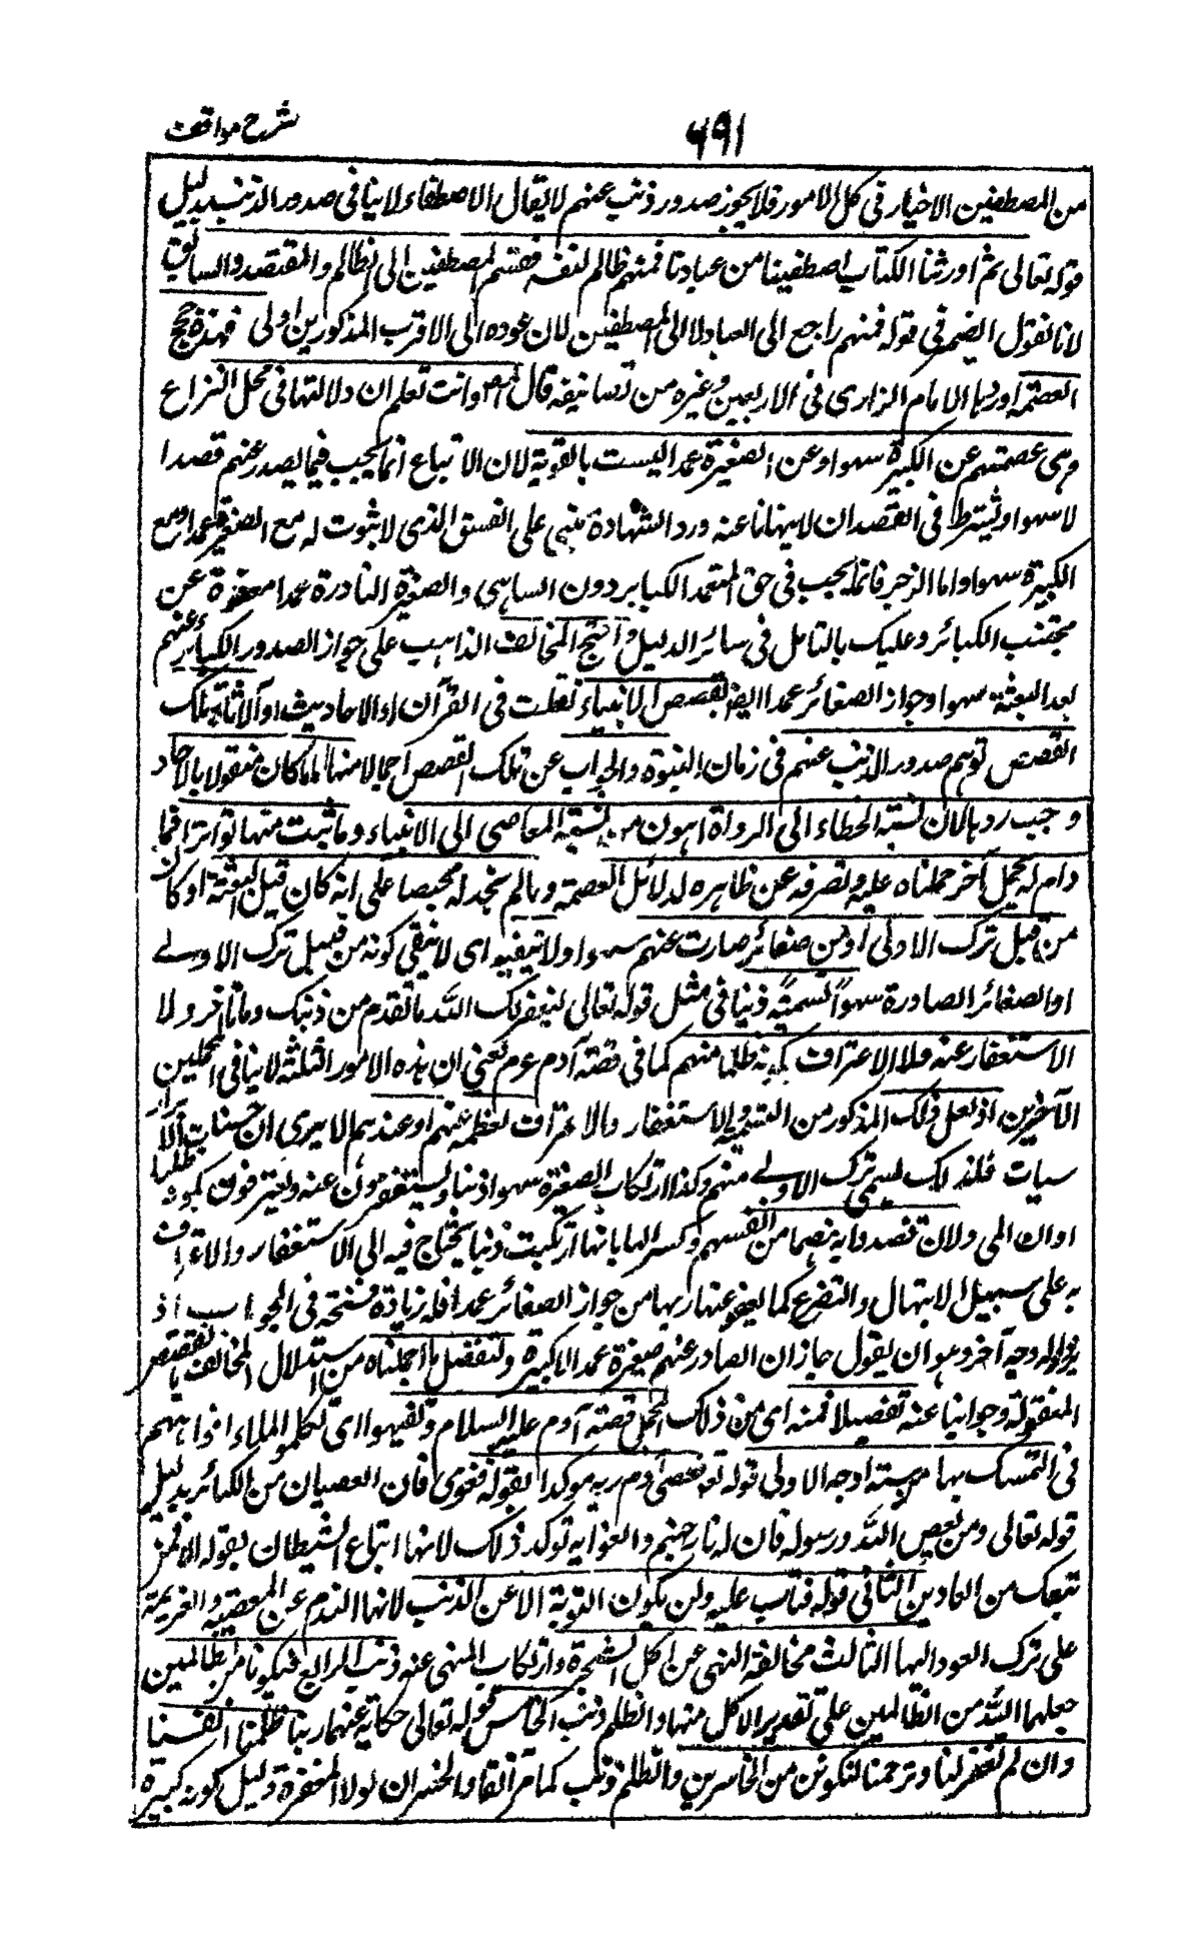 شرح مواقف
٦٩١
من المصطفين الاخيار فى كل الامور فلا يجوز صدور ذنب عنهم لا يقال الاصطفاء لا ينافى صدور الذنب بدليل
قوله تعالى ثم اورثنا الكتاب اصطفينا من عبادنا فمنهم ظالم لنفسه فقسم المصطفين الى الظالم والمقتصد والسابق
لانا نقول الضمير فى قوله فمنهم راجع الى العباد لا الى المصطفين لان عوده الى الاقرب المذكورين اولى فهذه حجج
العصمة اوردها الامام الرازى فى الاربعين وغيره من تصانيفه قال المص وانت تعلم ان دلالتها فى محل النزاع
وهى عصمتهم عن الكبيرة سهوا وعن الصغيرة عمدا ليست بالقوية لان الاتباع انما يجب فيما يصدر عنهم قصدا
لا سهوا ويشترط فى القصد ان لا ينهانا عنه ورد الشهادة مبنى على الفسق الذى لا ثبوت له مع الصغيرة عمدا ومع
الكبيرة سهوا واما الزجر فانما يجب فى حق المتعمد الكبائر دون الساهى والصغيرة النادرة عمدا معفوة عن
مجتنب الكبائر وعليك بالتامل فى سائر الدليل واحتج المخالف الذاهب على جواز الصدور الكبائر عنهم
بعد البعثة سهوا وجواز الصغائر عمدا ايضا بقصص الانبياء نقلت فى القرآن او الاحاديث او الآثار تلك
القصص توهم صدور الذنب عنهم فى زمان النبوة والجواب عن تلك القصص اجمالا منها الما كان منقولا بالآحاد
وجب ردها لان نسبة الخطاء الى الرواة اهون من نسبة المعاصى الى الانبياء وما ثبت منها تواترا فما
دام له محمل آخر حملناه عليه ونصرفه عن ظاهره لدلائل العصمة ومالم نجد له محيصا على انه كان قبل البعثة او كان
من قبيل ترك الاولى او من صغائر صارت عنهم سهوا ولا ينفيه اى لا ينفى كونه من قبيل ترك الاولے
او الصغائر الصادرة سهوا تسميته ذنبا فى مثل قوله تعالى ليغفر لك الله ما تقدم من ذنبك وما تاخر ولا
الاستغفار عنه ولا الاعتراف بكونه ظلما منهم كما فى قصة آدم عم يعنى ان هذه الامور الثلثة لا ينافى المحملين
الآخرين اذ لعل ذلك المذكور من التسمية والاستغفار والاعتراف لعظمه عنهم او عندهم الا يرى ان حسنات الابرار
سيات فلذلك يسمى ترك الاولے منهم وكذا ارتكاب الصغيرة سهوا ذنبا ويستغفرون عنه ويعترفون بكونه ظلما
به على سبيل الابتهال والتضرع كما يعفو عنها ربها من جواز الصغائر عمدا فله زيادة فسحة فى الجواب اذ
يزاد له وجه آخر وهو ان يقول جاز ان الصادر عنهم صغيرة عمدا لا كبيرة ولتفصل ما اجملناه من استدلال المخالف بالقصص
المنقولة وجوابنا عنه تفصيلا فمنه اى من ذلك المجمل قصة آدم عليه السلام وتفيهوا اى تكلموا املاء افواههم
فى التمسك بها من ستة اوجه الاولى قوله تعه فعصى آدم ربه موكدا بقوله فغوى فان العصيان من الكبائر بدليل
قوله تعالى ومن يعص الله ورسوله فان له نار جهنم والغواية توكد ذلك لانها اتباع الشيطان لقوله الا فمن
تبعك من الغاوين الثانى قوله فتاب عليه ولن يكون التوبة الا عن الذنب لانها الندم عن المعصية والعزيمة
على ترك العود اليها الثالث مخالفة النهى عن اكل الشجرة وارتكاب المنهى عنه ذنب الرابع فتكونا من الظالمين
جعلهما الله من الظالمين على تقدير الاكل منها والظلم ذنب الخامس قوله تعالى حكاية عنهما ربنا ظلمنا انفسنا
وان لم تغفر لنا وترحمنا لنكونن من الخاسرين والظلم ذنب كما مر آنفا والخسران لولا المغفرة دليل كونه كبيرة